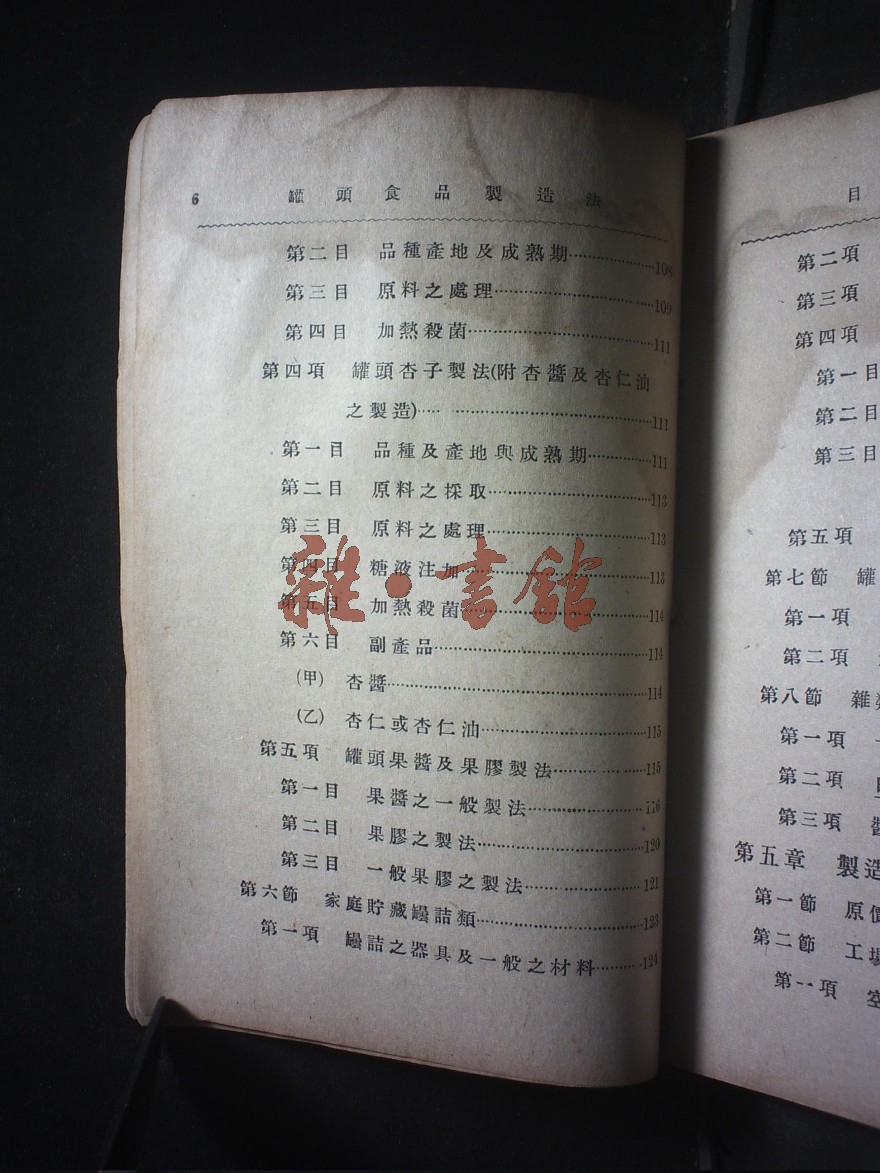 6 罐頭食品製造法
第二目 品種產地及成熟期……………108
第三目 原料之處理……………109
第四目 加熱殺菌……………111
第四項 罐頭杏子製法(附杏醬及杏仁油
之製造)……………111
第一目 品種及產地與成熟期……………111
第二目 原料之採取……………113
第三目 原料之處理……………113
第四目 糖液注加……………113
第五目 加熱殺菌……………114
第六目 副產品……………114
(甲) 杏醬……………114
(乙) 杏仁或杏仁油……………115
第五項 罐頭果醬及果膠製法……………115
第一目 果醬之一般製法……………116
第二目 果膠之製法……………120
第三目 一般果膠之製法……………121
第六節 家庭貯藏罎詰類……………123
第一項 罎詰之器具及一般之材料……………124
雜·書館
目
第二項
第三項
第四項
第一目
第二目
第三目
第五項
第七節 罐
第一項
第二項
第八節 雜
第一項
第二項
第三項 醬
第五章 製造
第一節 原價
第二節 工場
第一項 空